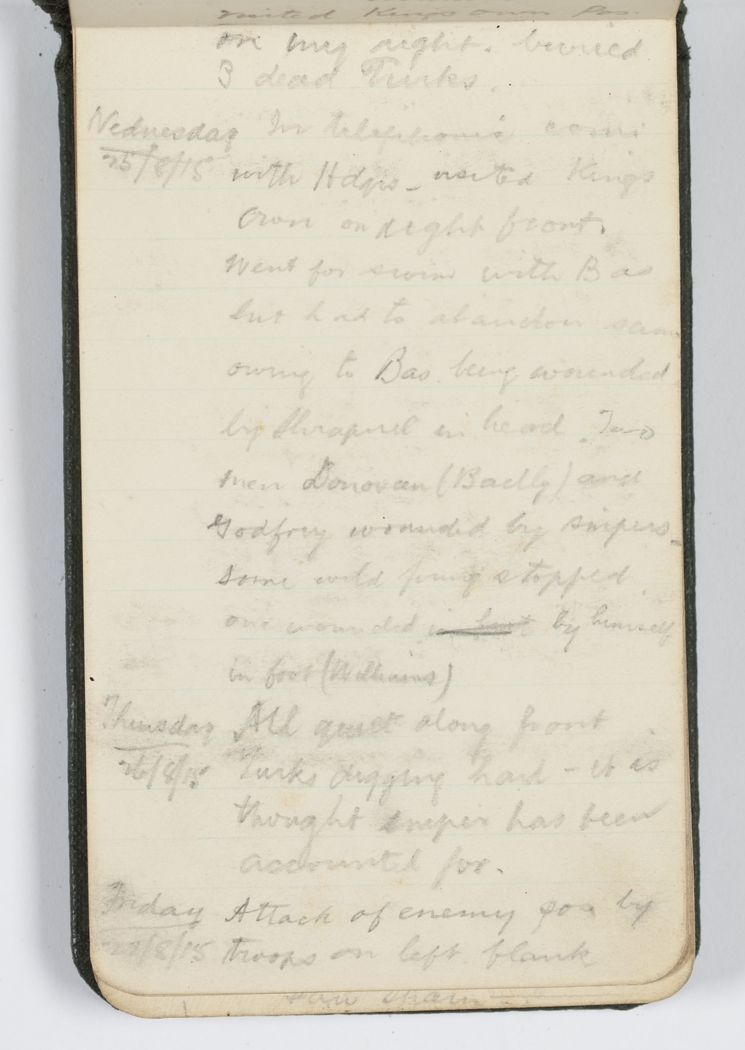 visited Kings own
on my right. buried
3 dead Turks.
Wednesday In telephonic comi
25/8/15 with Hdqrs - visited Kings
Own on right front.
Went for swim with Bas
but had to abandon
owing to Bas being wounded
by Shrapnel in head. Two
men Donovan (Badly) and
Godfrey wounded by snipers -
Some wild firing stopped
one wounded by himself
in foot (Williams)
Thursday All quiet along front
26/8/15 Turks digging hard - it is
thought sniper has been
accounted for.
Friday Attack of enemy pos by
27/8/15 troops on left flank